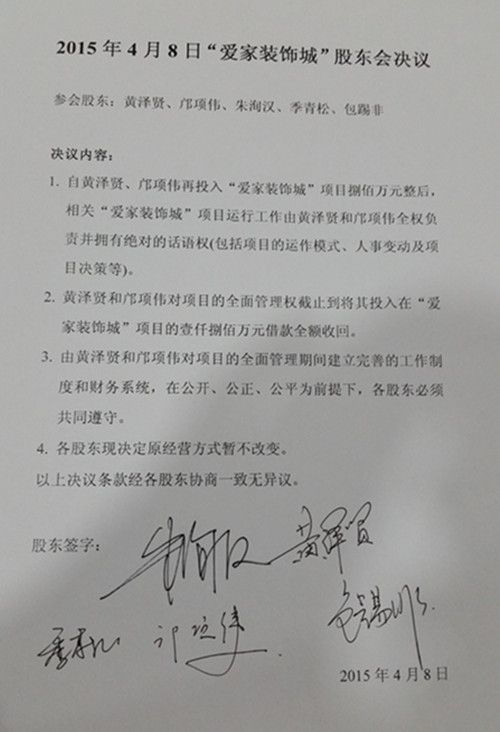 2015年4月8日“爱家装饰城”股东会决议
参会股东：黄泽贤、邝项伟、朱洵汉、季青松、包踢非
决议内容：
1. 自黄泽贤、邝项伟再投入“爱家装饰城”项目捌佰万元整后，
相关“爱家装饰城”项目运行工作由黄泽贤和邝项伟全权负
责并拥有绝对的话语权(包括项目的运作模式、人事变动及项
目决策等)。
2. 黄泽贤和邝项伟对项目的全面管理权截止到将其投入在“爱
家装饰城”项目的壹仟捌佰万元借款全额收回。
3. 由黄泽贤和邝项伟对项目的全面管理期间建立完善的工作制
度和财务系统，在公开、公正、公平为前提下，各股东必须
共同遵守。
4. 各股东现决定原经营方式暂不改变。
以上决议条款经各股东协商一致无异议。
股东签字：
黄泽贤
邝项伟
2015年4月8日